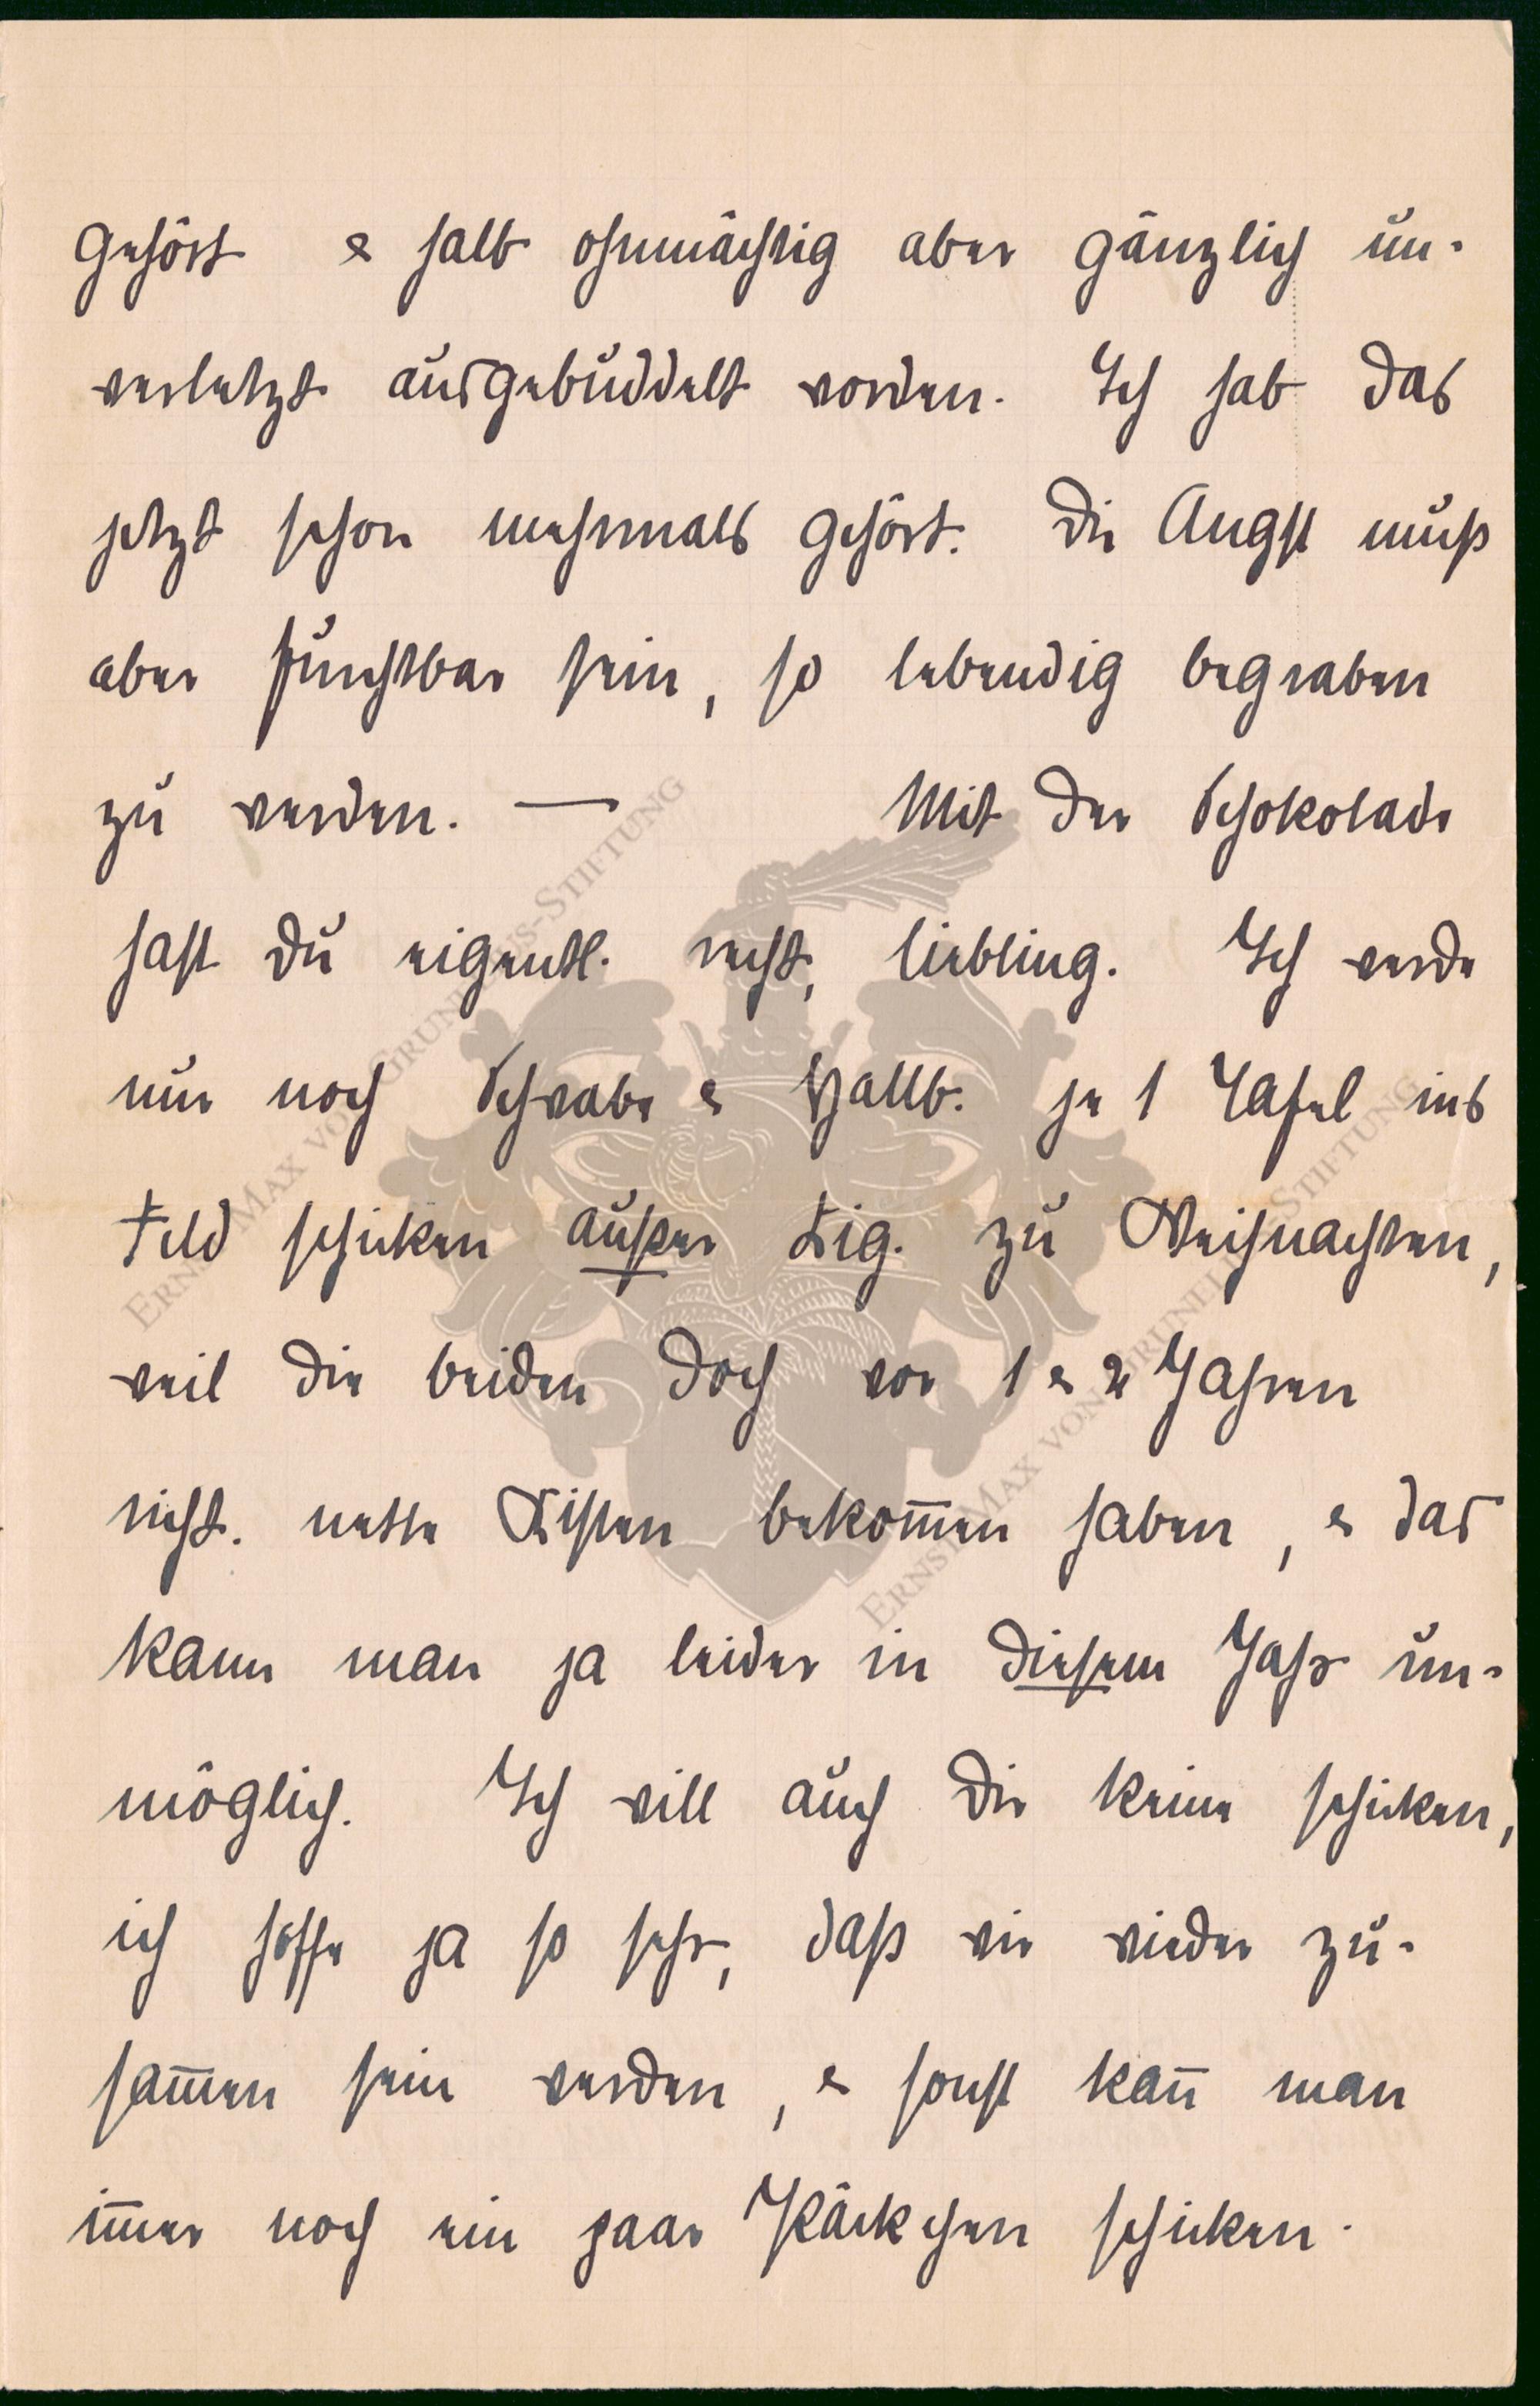 gehört & halb ohnmächtig aber gänzlich un-
verletzt ausgebuddelt worden. Ich hab das
jetzt schon mehrmals gehört. Die Angst muß
aber furchtbar sein, so lebendig begraben
zu werden. — Mit der Schokolade
hast Du eigentl. recht, Liebling. Ich werde
nur noch Schwabe & Hallb. je 1 Tafel ins
Feld schicken außer Zig. zu Weihnachten,
weil die beiden doch vor 1 & 2 Jahren
nicht nette Kisten bekom̅en haben, & das
kann man ja leider in diesem Jahr un-
möglich. Ich will auch Dir keine schicken,
ich hoffe ja so sehr, daß wir wieder zu-
sam̅en sein werden, & sonst kan̅ man
im̅er noch ein paar Päckchen schicken.
ERNST MAX VON GRUNELIUS-STIFTUNG
ERNST MAX VON GRUNELIUS-STIFTUNG